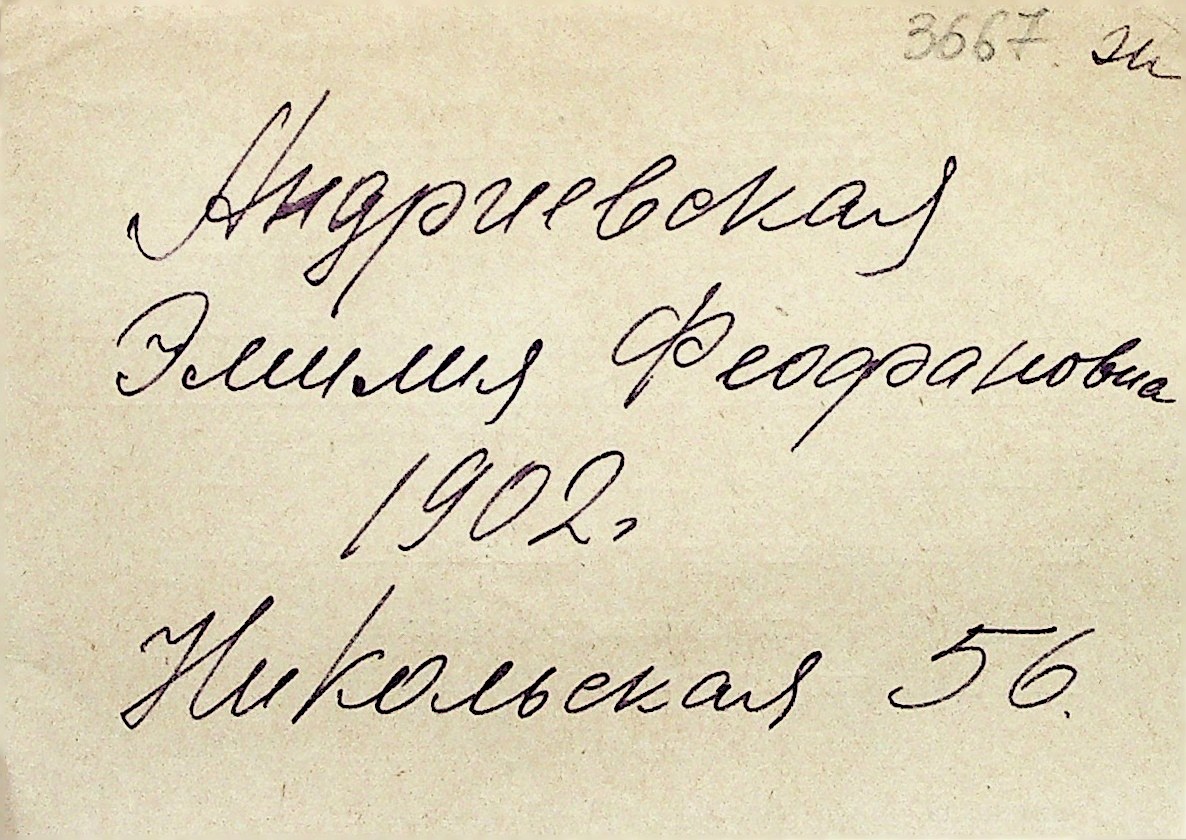 3667
Андриевская
Эмилия Феофановна
1902 г
Никольская 56.